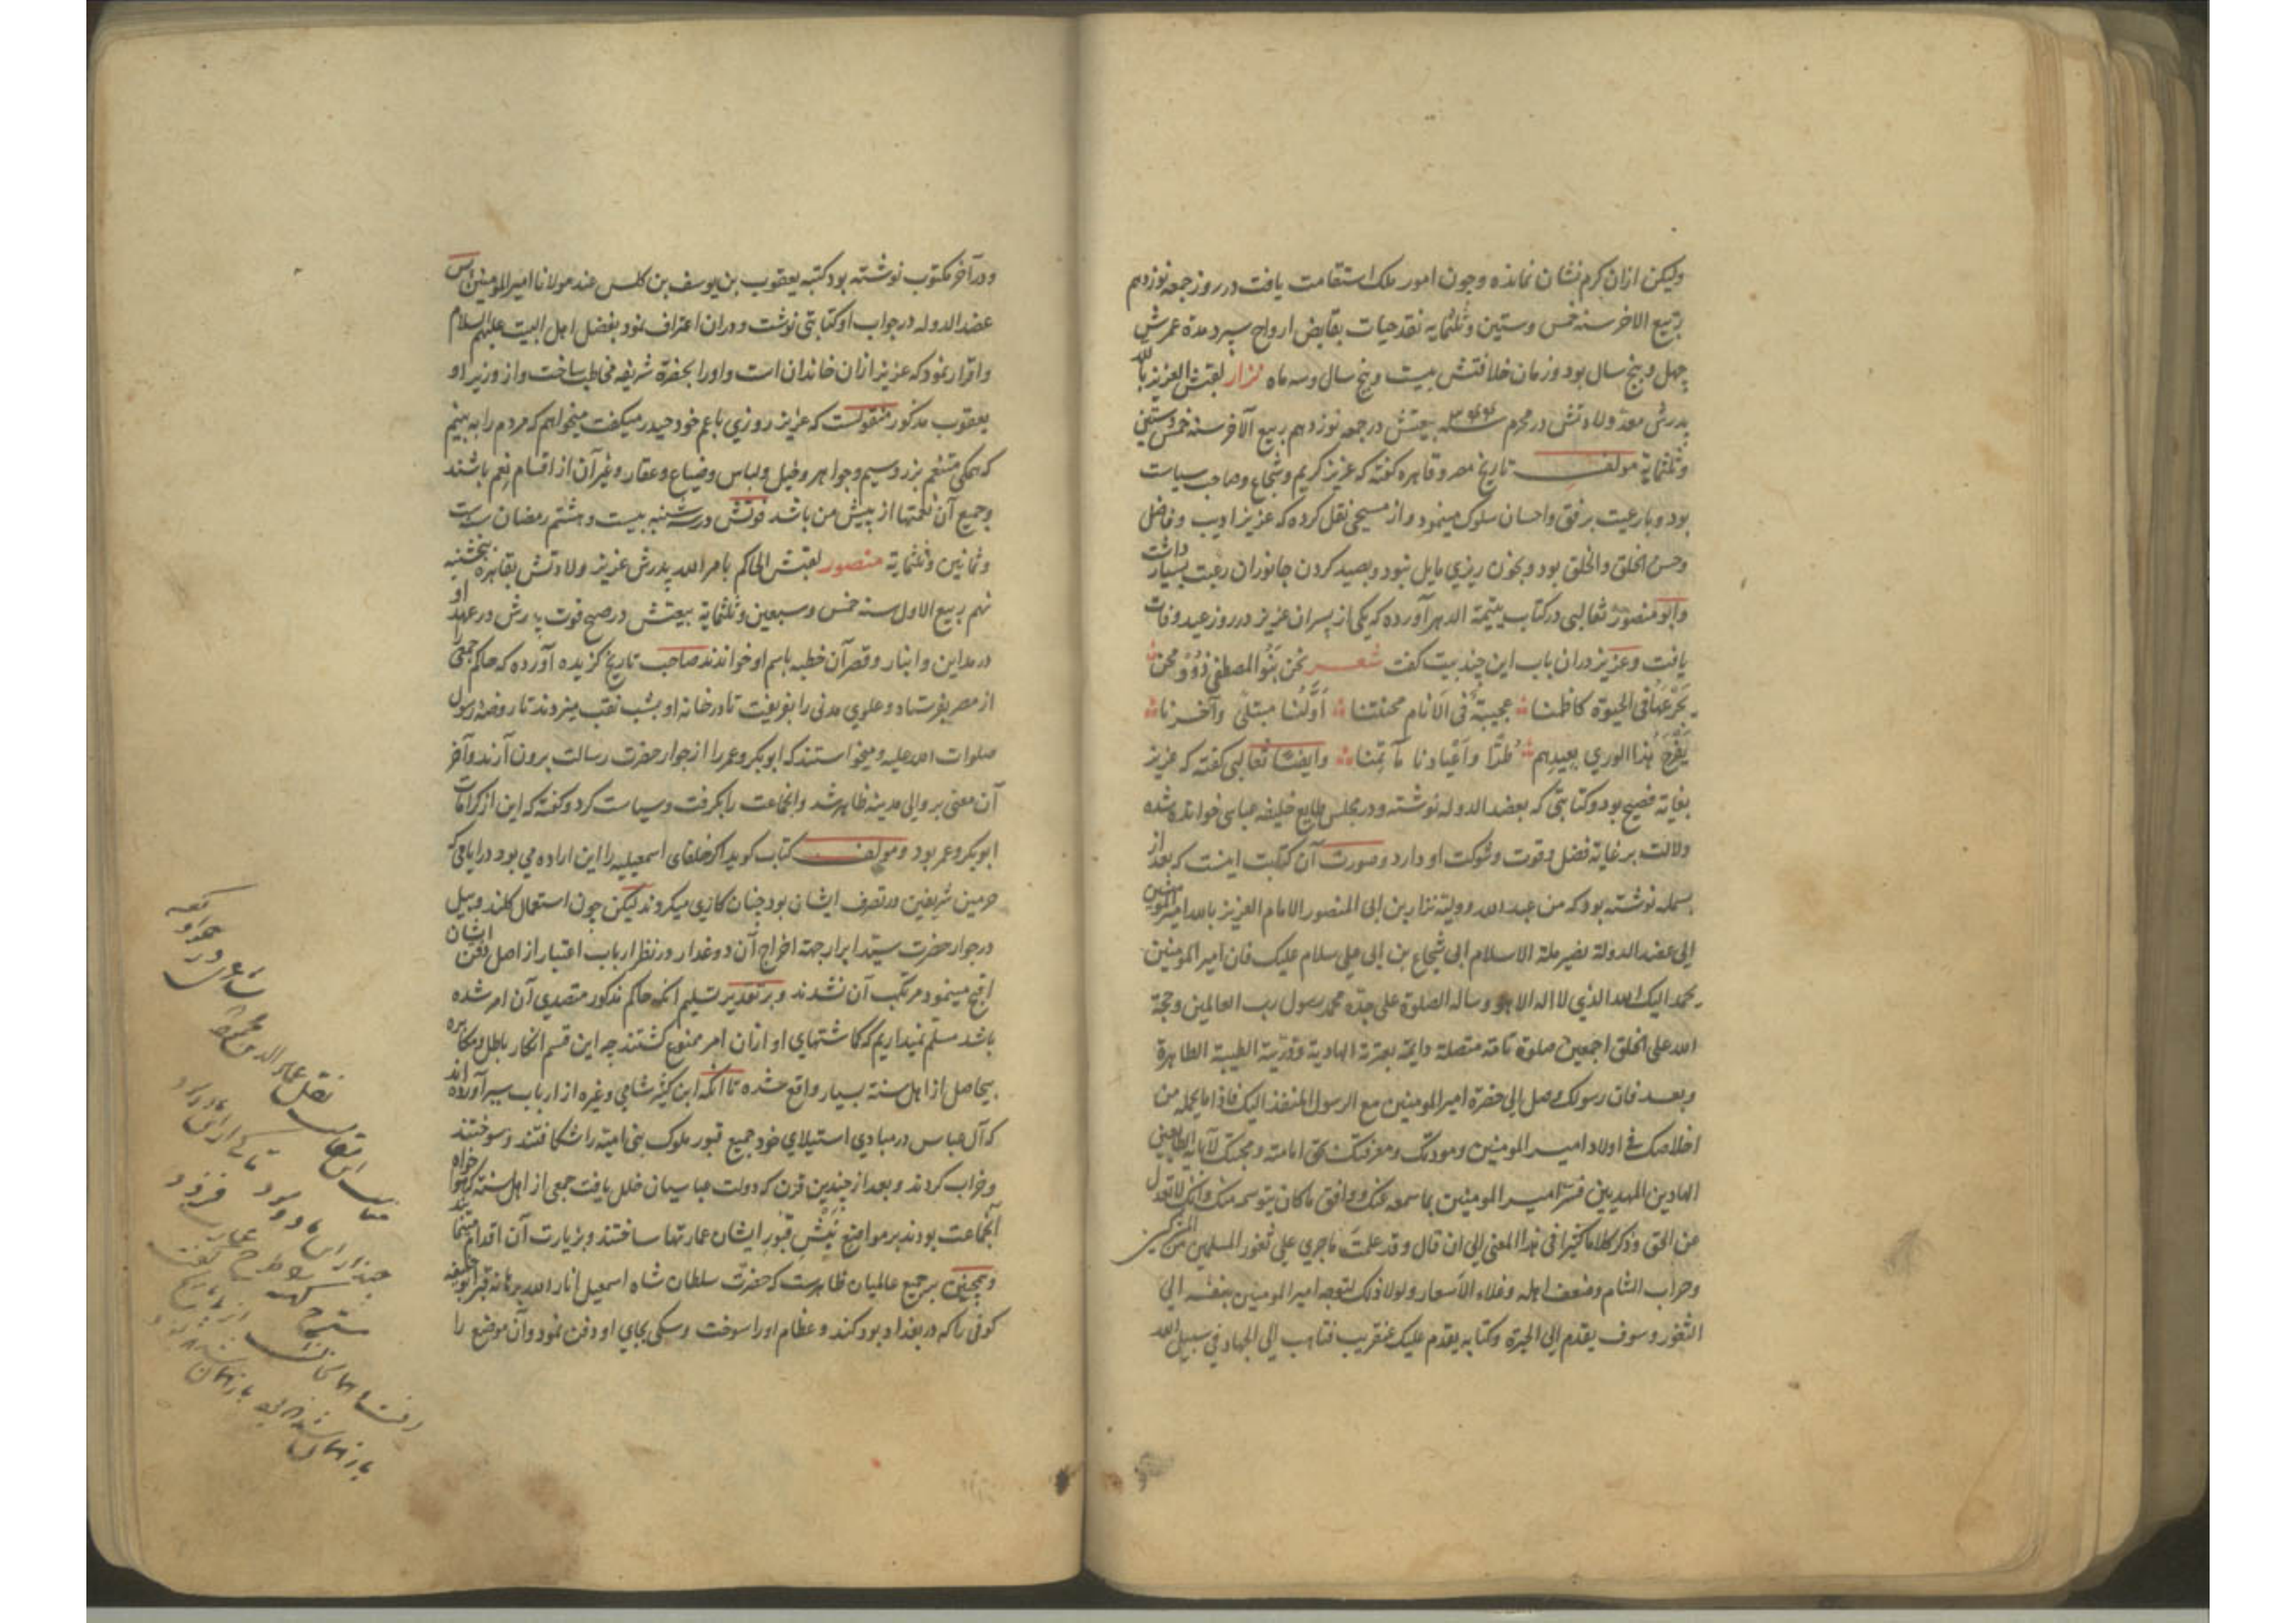 ولیکن ازان کرم نشان نمانده وچون امور ملک استقامت یافت در روز جمعه نوزدهم
ربیع الاخر سنه خمس وستین وثلثمایه نقد حیات بقابض ارواح سپرد مدة عمرش
چهل وپنج سال بود وزمان خلافتش بیست وپنج سال وسه ماه نزار لقبش العزیز بالله
پدرش معد ولادتش در محرم بیعتش در جمعه نوزدهم ربیع الآخر سنه خمس وستین
وثلثمایة مولف تاریخ مصر وقاهره کفته که عزیز کریم وشجاع وصاحب سیاست
بود وبا رعیت برفق واحسان سلوک مینمود واز مسیحی نقل کرده که عزیز ادیب وفاضل
وحسن الخلق والخلق بود وبخون ریزی مایل نبود وبصید کردن جانوران رغبت بسیار داشت
وابو منصور ثعالبی در کتاب یتیمة الدهر آورده که یکی از پسران عزیز در روز عید وفات
یافت وعزیز دران باب این چند بیت کفت شعر نحن بنو المصطفی ذوو محن
یجرعها فی الحیوة کاظمنا عجیبة فی الانام محنتنا اولنا مبتلی وآخرنا
یفرح هذا الوری بعیدهم طرا واعیادنا مآتمنا وایضا ثعالبی کفته که عزیز
بغایة فصیح بود وکتابتی که بعضد الدوله نوشته ودر مجلس طایع خلیفه عباسی خوانده شده
دلالت بر غایة فضل وقوت وشوکت او دارد وصورت آن کتابت اینست که بعد از
بسمله نوشته بود که من عبد الله وولیه نزار بن ابی المنصور الامام العزیز بالله امیر المومنین
الی عضد الدولة نصیر ملة الاسلام ابی شجاع بن ابی علی سلام علیک فان امیر المومنین
یحمد الیک الله الذی لا اله الا هو وساله الصلوة علی جده محمد رسول رب العالمین وحجة
الله علی الخلق اجمعین صلوة تامة متصلة دایمة بعترته الهادیة وذریته الطیبة الطاهرة
وبعد فان رسولک وصل الی حضرة امیر المومنین مع الرسول المنفذ الیک فاذا ما یحمله من
اخلاصک فی اولاد امیر المومنین ومودتک ومعرفتک بحق امامته ومحبتک لآبایه الطایعین
الهادین المهدیین فسر امیر المومنین بما سمعه عنک ووافق ما کان یتوسمه منک وانک لا تعدل
عن الحق وذکر کلاما کثیرا فی هذا المعنی الی ان قال وقد علمت ما جری علی ثغور المسلمین من المشرکین
وخراب الشام وضعف اهله وغلاء الاسعار ولولا ذلک لتوجه امیر المومنین بنفسه الی
الثغور وسوف یقدم الی الحیرة وکتابه یقدم علیک عنقریب فتاهب الی الجهاد فی سبیل الله
ودر آخر مکتوب نوشته بود کتبه یعقوب بن یوسف بن کلس عند مولانا امیر المومنین پس
عضد الدوله در جواب او کتابتی نوشت ودران اعتراف نمود بفضل اهل البیت علیهم السلام
واقرار نمود که عزیز ازان خاندان است واورا بحضرة شریفه مخاطب ساخت واز وزیر او
یعقوب مذکور منقولست که عزیز روزی با عم خود حیدر میکفت میخواهم که مردم را به بینم
که همکی متنعم بزر وسیم وجواهر وخیل ولباس وضیاع وعقار وغیر آن از اقسام نعم باشند
وجمیع آن نعمتها از پیش من باشد فوتش در سه شنبه بیست وهشتم رمضان سنه ست
وثمانین وثلثمایة منصور لقبش الحاکم بامر الله پدرش عزیز ولادتش بقاهره پنجشنبه
نهم ربیع الاول سنه خمس وسبعین وثلثمایة بیعتش در صبح فوت پدرش در عهد او
در مداین وانبار وقصر آن خطبه باسم او خواندند صاحب تاریخ کزیده آورده که حاکم جمعی را
از مصر بفرستاد وعلوی مدنی را بفریفت تا در خانه او بشب نقب میزدند تا روضه رسول
صلوات الله علیه ومیخواستند که ابوبکر وعمر را از جوار حضرت رسالت برون آرند وآخر
آن معنی بر والی مدینه ظاهر شد وانجماعت را بکرفت وسیاست کرد وکفته که این از کرامات
ابوبکر وعمر بود ومولف کتاب کوید اکر خلفای اسمعیلیه را این اراده می بود در ایامی که
حرمین شریفین در تصرف ایشان بود چنان کاری میکردند لیکن چون استعمال کلند وبیل
در جوار حضرت سید ابرار جهة اخراج آن دو غدار در نظر ارباب اعتبار از اصل دفن ایشان
اقبح مینمود مرتکب آن نشدند وبر تقدیر تسلیم انکه حاکم مذکور متصدی آن امر شده
باشد مسلم نمیداریم که کاشتهای او ازان امر ممنوع کشتند چه این قسم انکار باطل ومکابره
بیحاصل از اهل سنة بسیار واقع شده تا انکه ابن کثیر شامی وغیره از ارباب سیر آورده اند
که آل عباس در مبادی استیلای خود جمیع قبور ملوک بنی امیه را شکافتند وسوختند
وخراب کردند وبعد از چندین قرن که دولت عباسیان خلل یافت جمعی از اهل سنة که هواخواه
آنجماعت بودند بر مواضع نبش قبور ایشان عمارتها ساختند وبزیارت آن اقدام مینمایند
وهمچنین بر جمیع عالمیان ظاهرست که حضرت سلطان شاه اسمعیل انار الله برهانه قبر ابو حنیفه
کوفی را که در بغداد بود کند وعظام اورا سوخت وسکی بجای او دفن نمود وآن موضع را